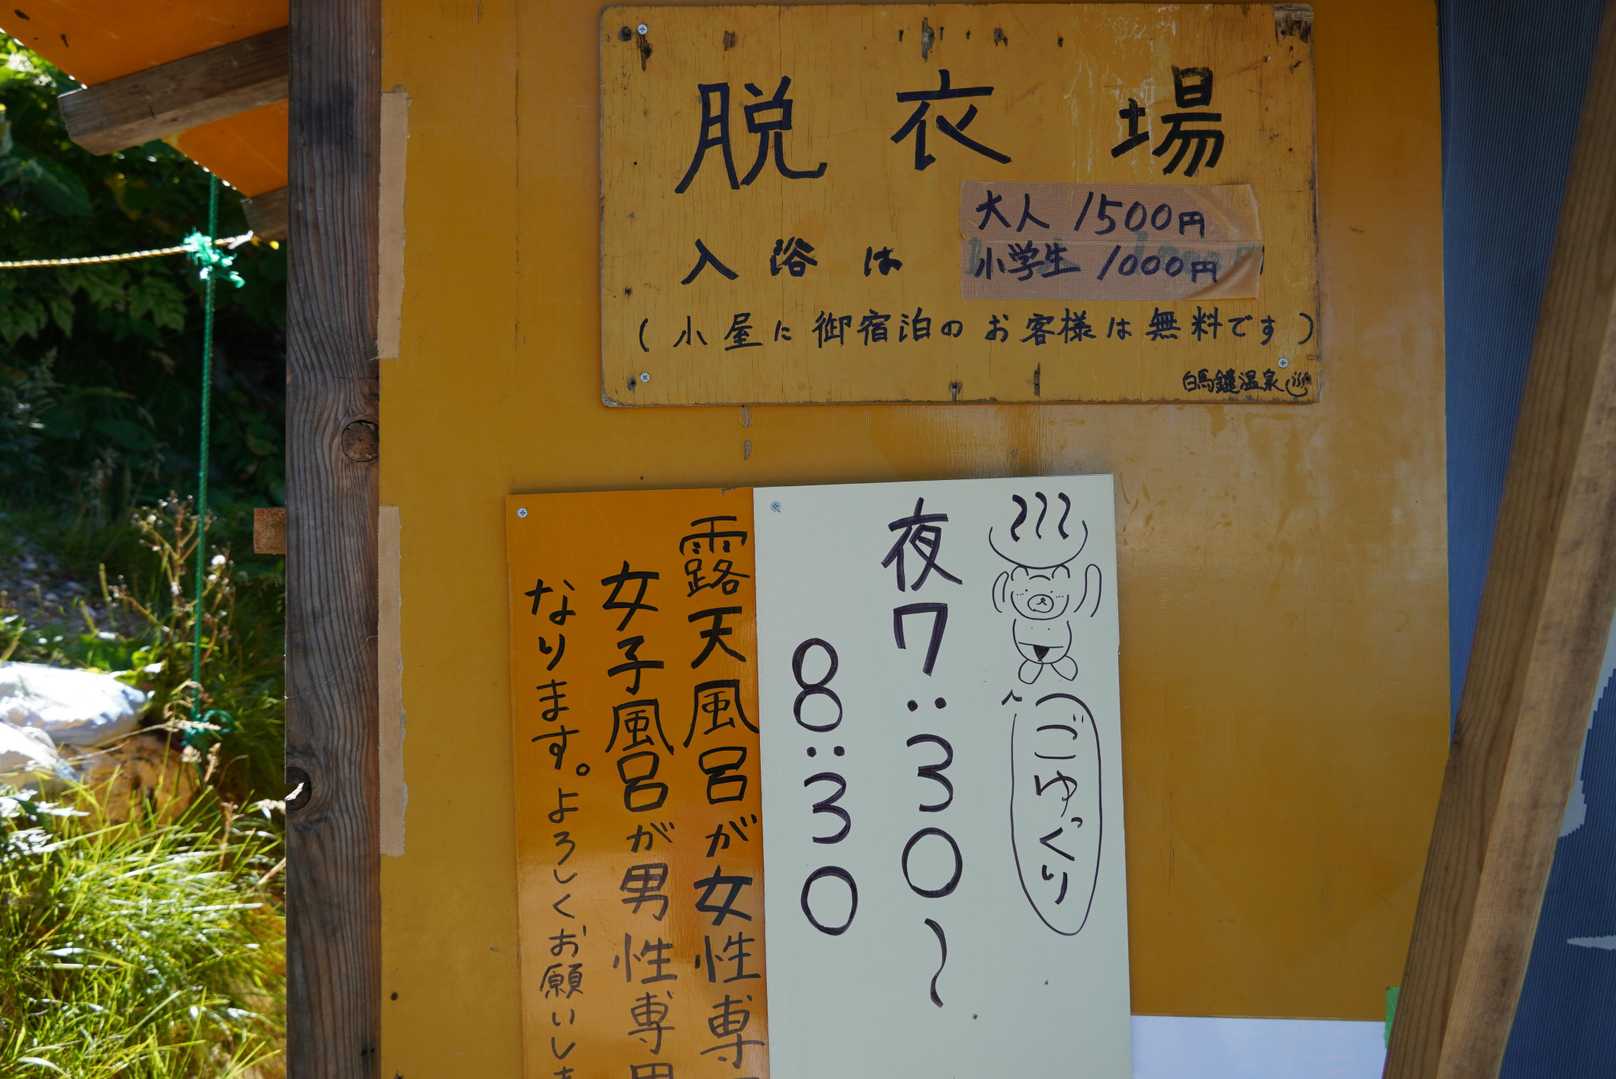 脱衣場
入浴は
大人 1500円
小学生 1000円
(小屋に御宿泊のお客様は無料です)
白馬鑓温泉
ごゆっくり
夜7:30〜
8:30
露天風呂が女性専
女子風呂が男性専用
なります。よろしくお願いしま